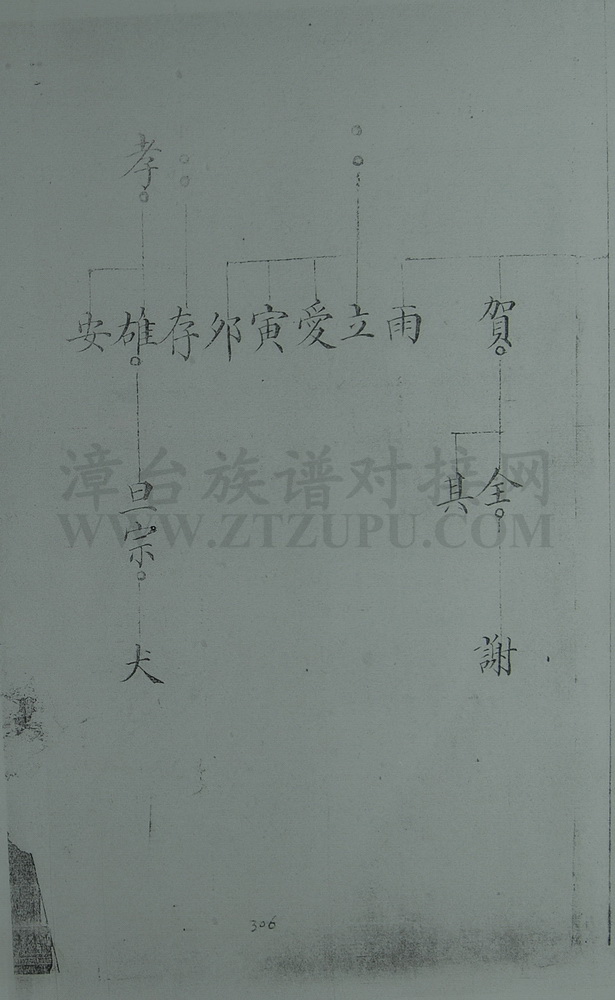 孝
賀
雨
立
愛
寅
夘
存
雄
安
其
旦宗
謝
犬
漳台族谱对接网
WWW.ZTZUPU.COM
306